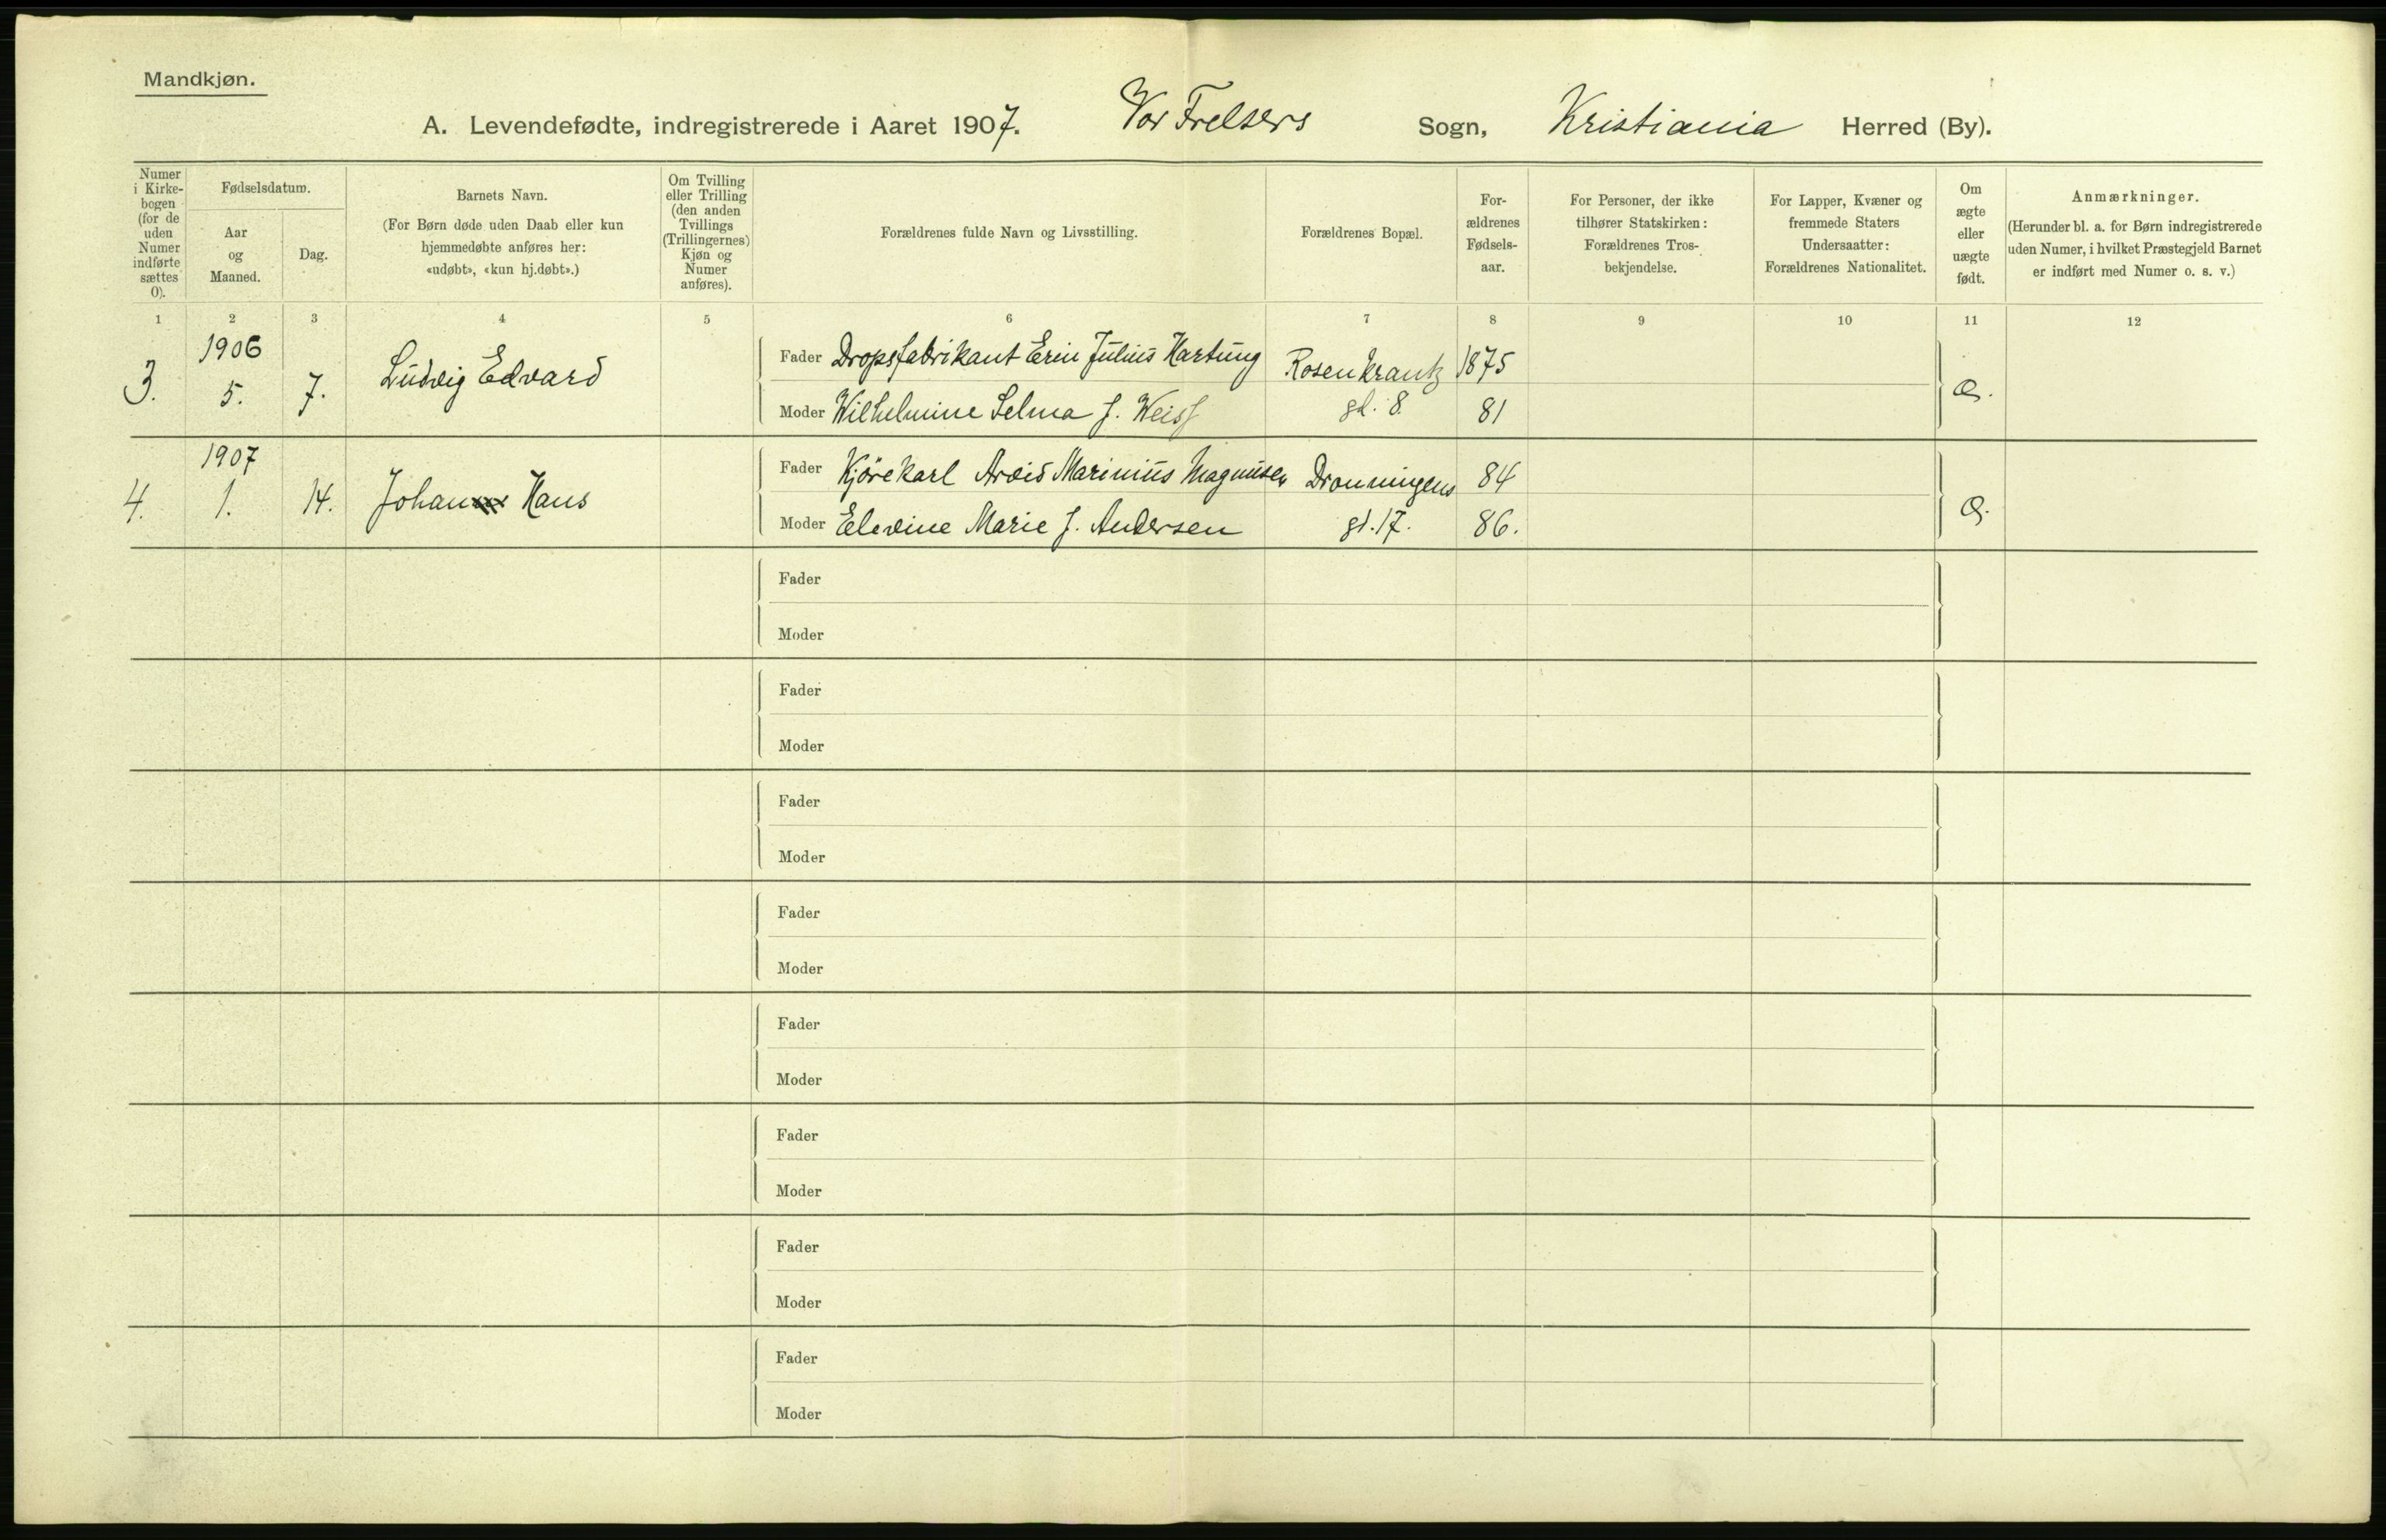 Mandkjøn.
A. Levendefødte, indregistrerede i Aaret 1907. Vor Frelsers Sogn, Kristiania Herred (By).
Numer i Kirkebogen (for de uden Numer indførte sættes 0).
Fødselsdatum.
Aar og Maaned.
Dag.
Barnets Navn.
(For Børn døde uden Daab eller kun
hjemmedøbte anføres her:
«udøbt», «kun hj.døbt».)
Om Tvilling eller Trilling (den anden Tvillings (Trillingernes) Kjøn og Numer anføres).
Forældrenes fulde Navn og Livsstilling.
Forældrenes Bopæl.
For-
ældrenes
Fødsels-
aar.
For Personer, der ikke
tilhører Statskirken:
Forældrenes Tros-
bekjendelse.
For Lapper, Kvæner og
fremmede Staters
Undersaatter:
Forældrenes Nationalitet.
Om
ægte
eller
uægte
født.
Anmærkninger.
(Herunder bl. a. for Børn indregistrerede
uden Numer, i hvilket Præstegjeld Barnet
er indført med Numer o. s. v.)
1 2 3 4 5 6 7 8 9 10 11 12
1906
3. 5. 7. Ludvig Edvard
Fader Dropsfabrikant Julius Hartung Rosenkrantz 1875
Moder Wilhelmine Selma f. Weiss gd. 8. 81
1907
4. 1. 14. Johan Hans
Fader Kjörekarl Arvid Marinius Magnusen Dronningens 84
Moder Elevine Marie f. Andersen gd. 17. 86.
Fader
Moder
Fader
Moder
Fader
Moder
Fader
Moder
Fader
Moder
Fader
Moder
Fader
Moder
Fader
Moder